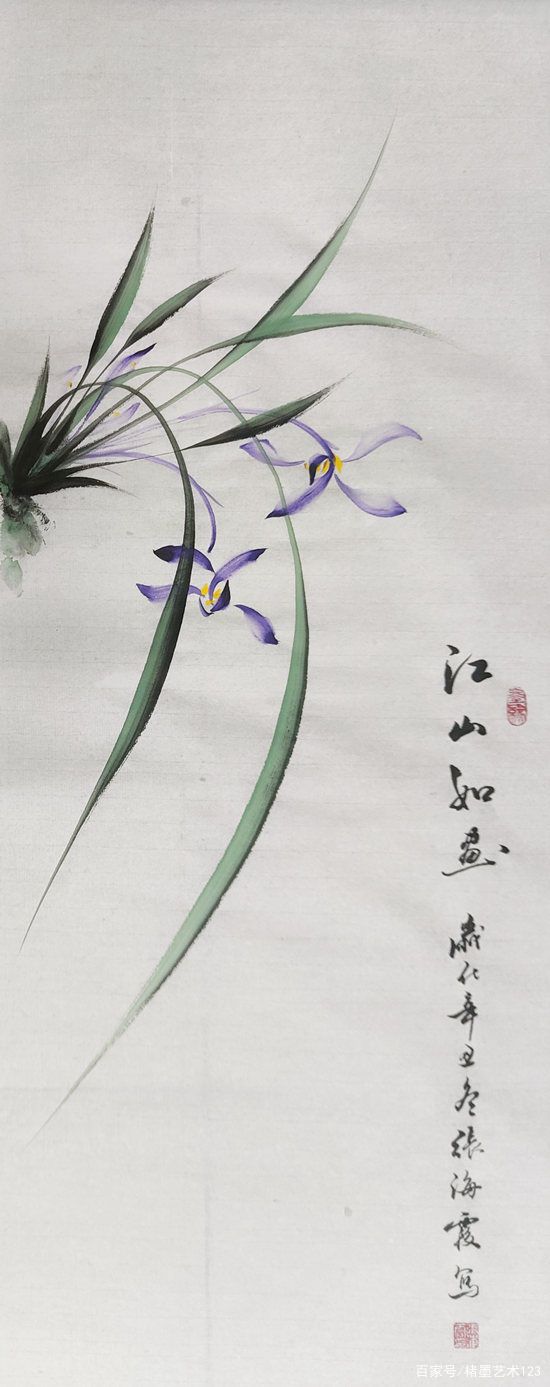 江山如画
歲在辛丑冬張海霞寫
百家号/楮墨艺术123